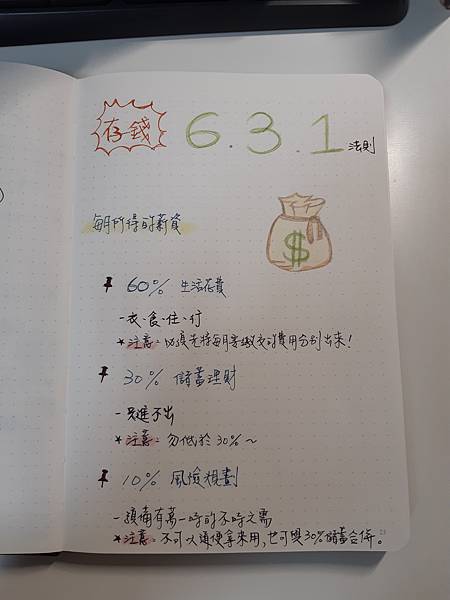 存錢
6.3.1 法則
每月所得的薪資
60% 生活花費
-衣、食、住、行
*注意：必須先將每月要繳衣的費用分別出來！
30% 儲蓄理財
-只進不出
*注意：勿低於30%～
10% 風險規劃
-預備有萬一時的不時之需
*注意：不可以隨便拿來用,也可與30%儲蓄合併。
23
$